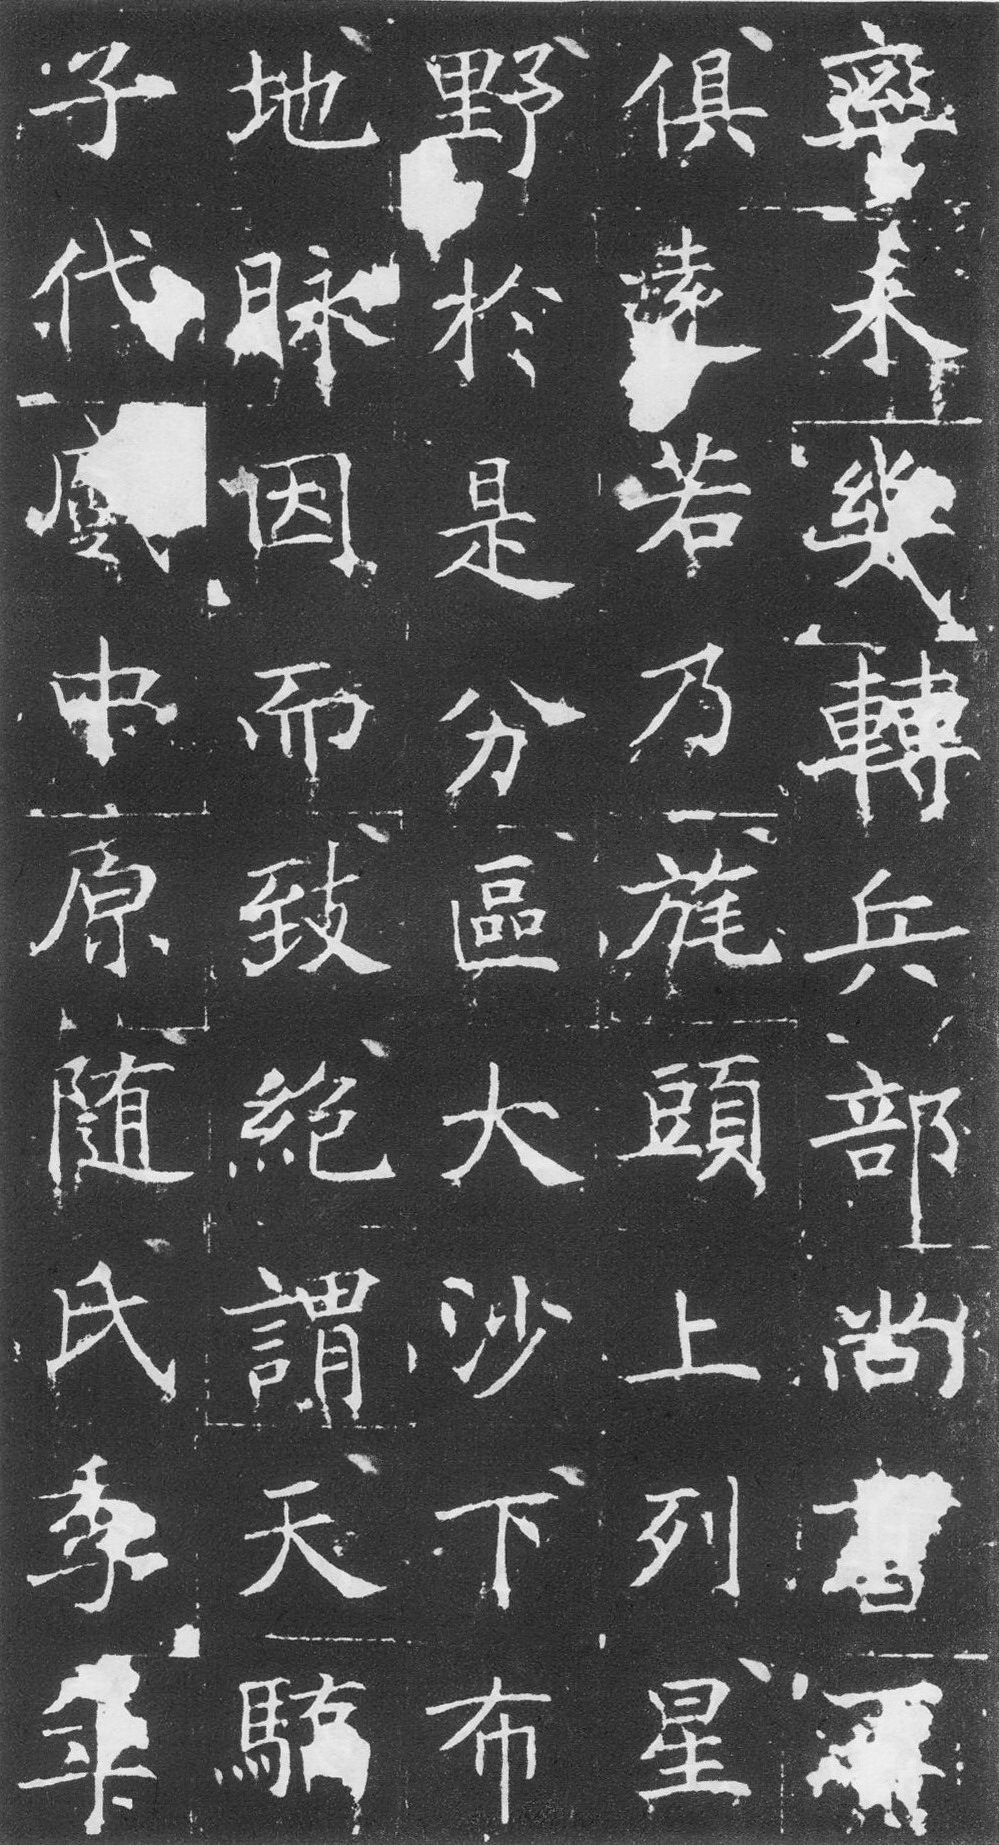 齊未幾轉兵部尚書
俱遠若乃旄頭上列星
野於是分區大沙下布
地脉因而致絶謂天驕
子代中原随氏季年